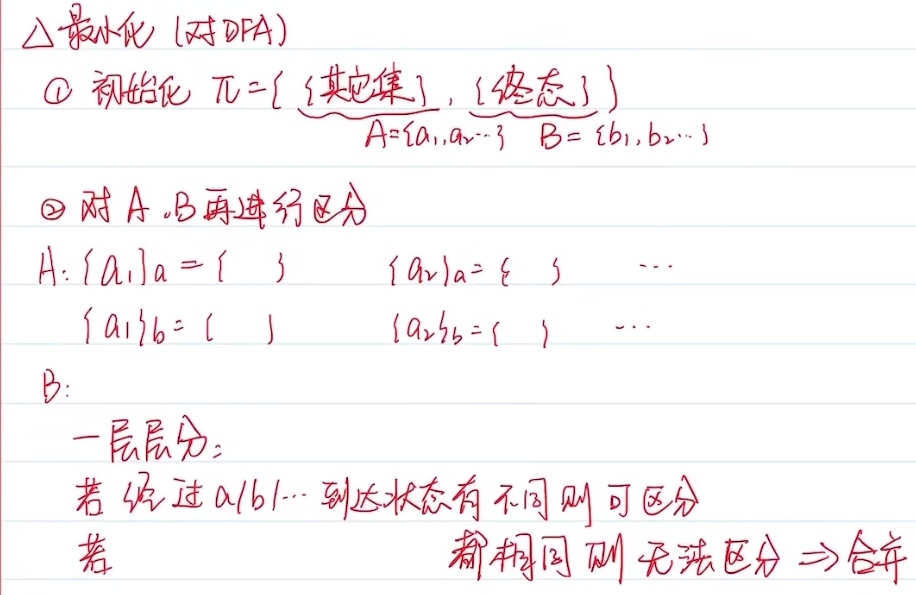 △最小化 (对DFA)
① 初始化 π={ {其它集}, {终态} }
A={a₁,a₂…} B={b₁,b₂…}
② 对A、B再进行区分
A: {a₁}a = { } {a₂}a = { } …
{a₁}b = { } {a₂}b = { } …
B:
一层层分:
若经过a/b/…到达状态有不同则可区分
若 都相同则无法区分 ⇒ 合并